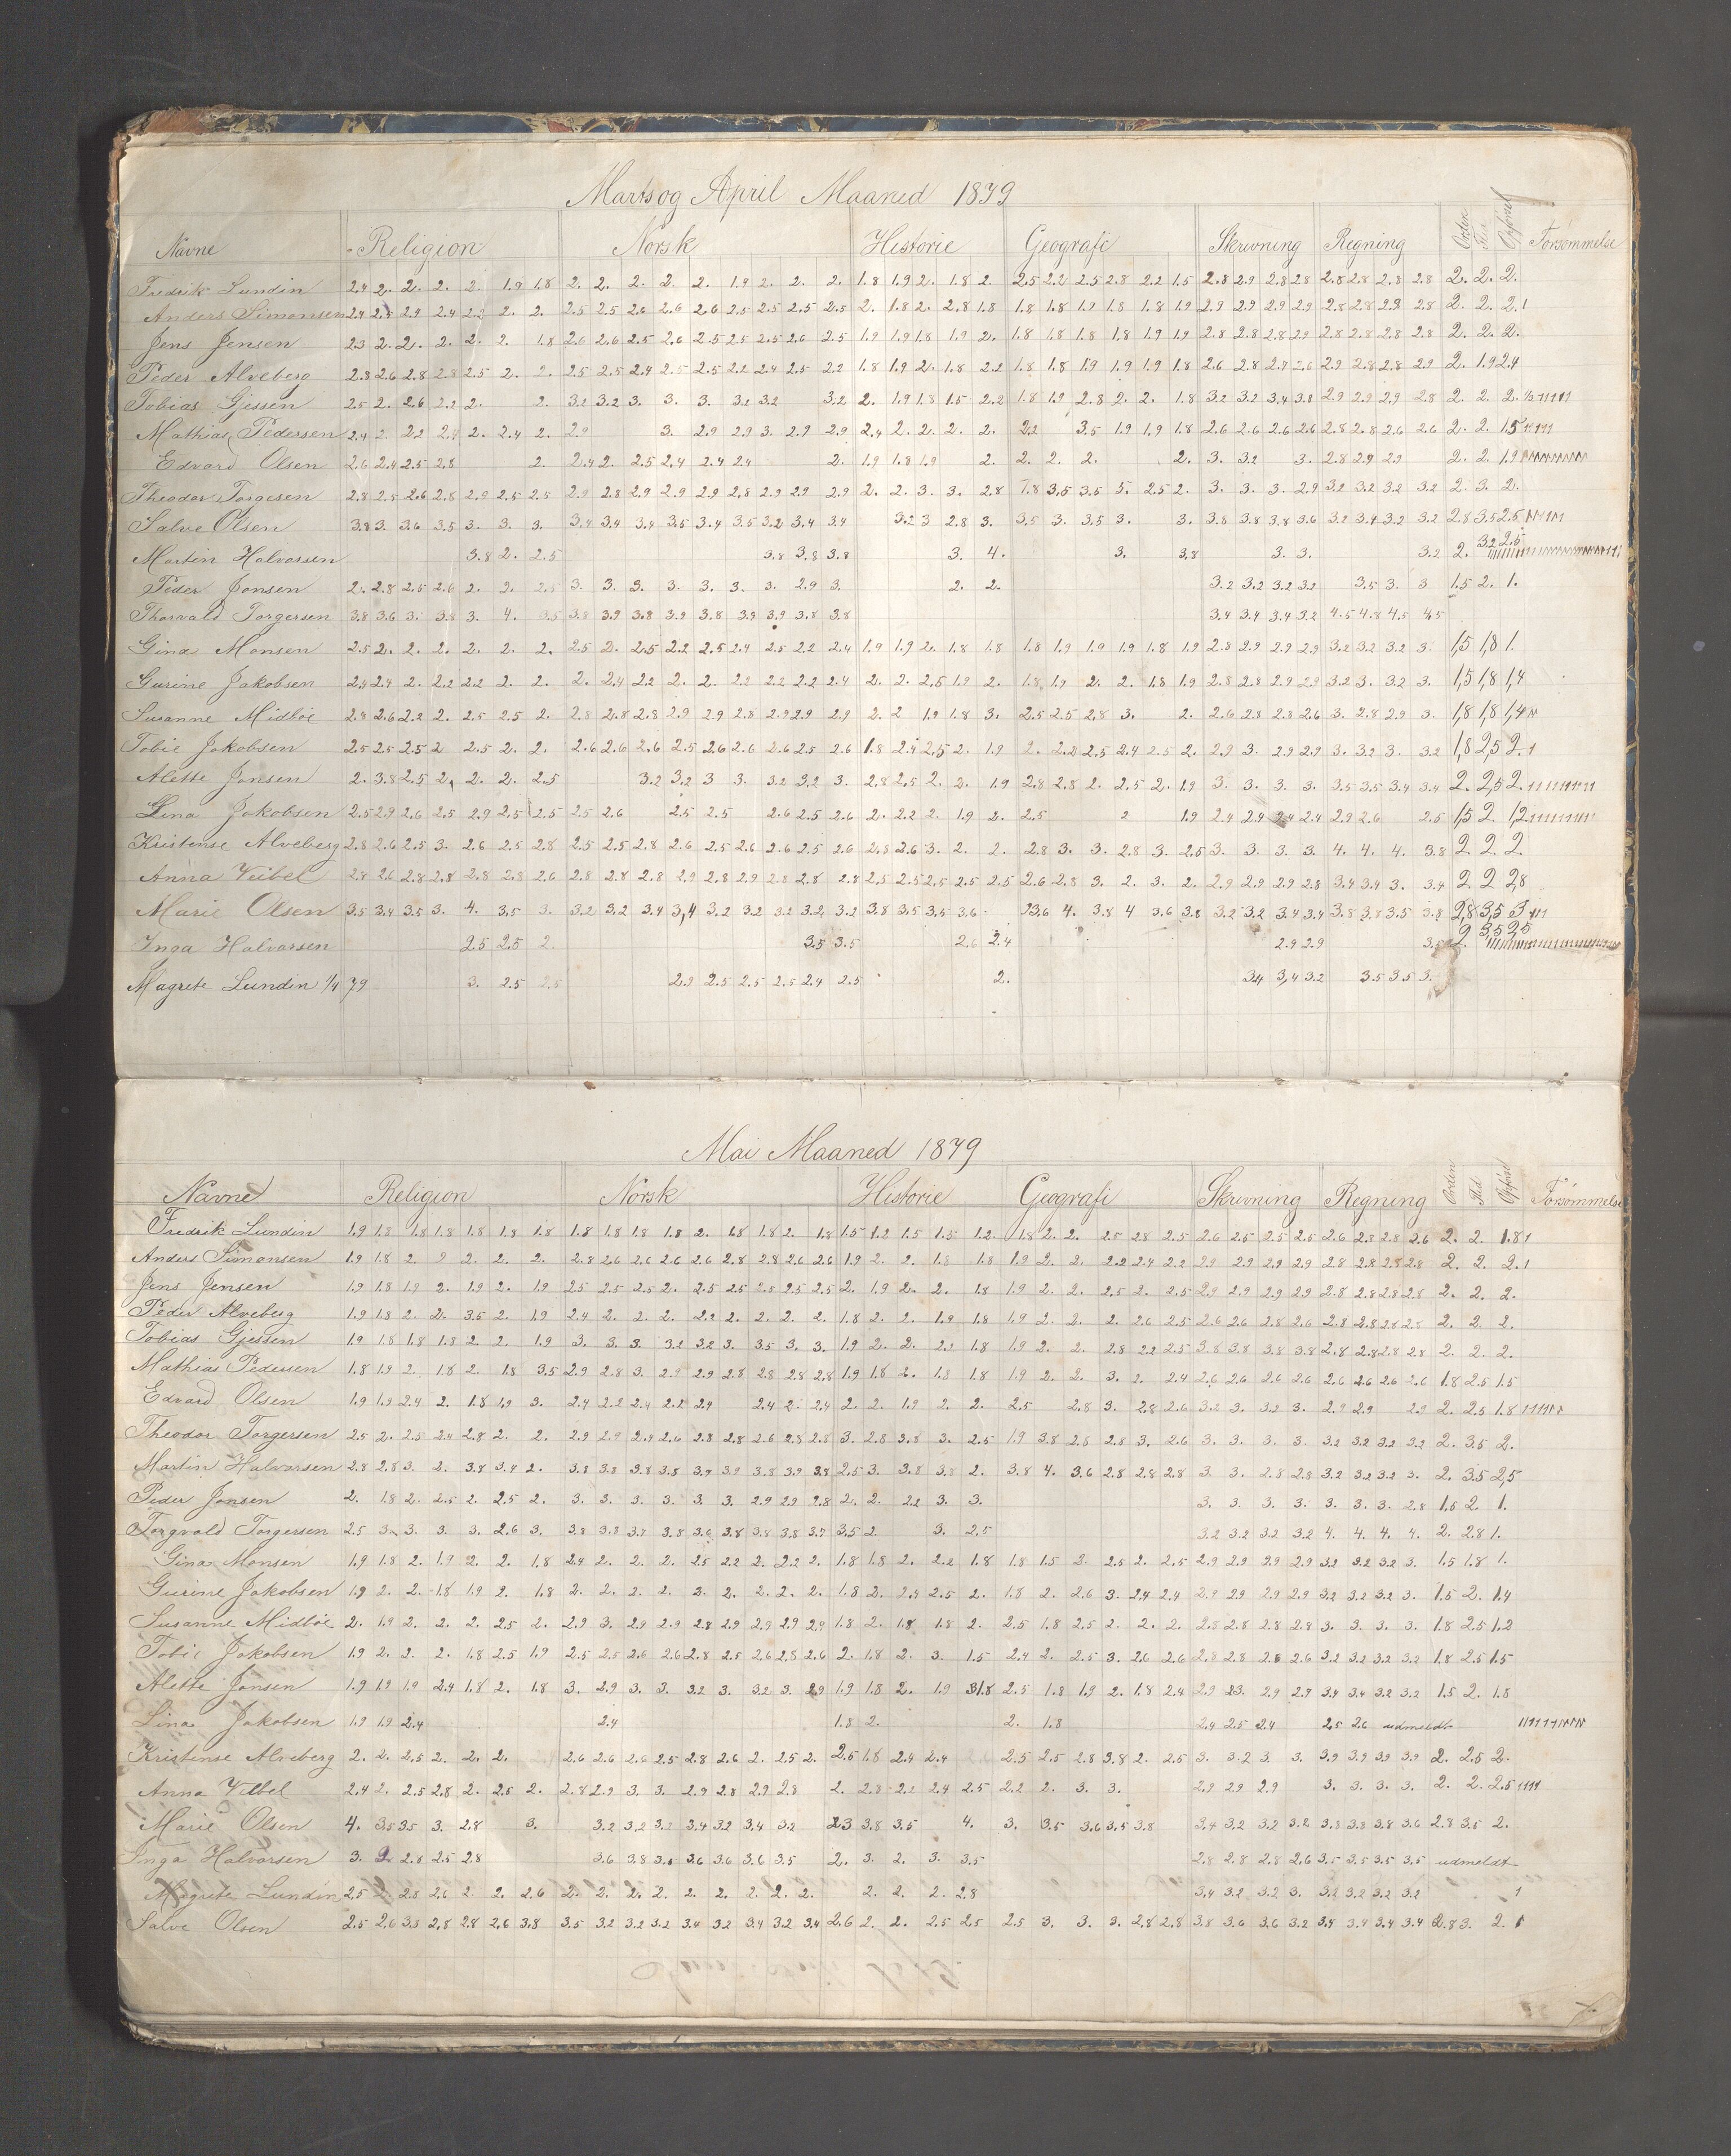 Marts og April Maaned 1879
Navne Religion Norsk Historie Geografi Skrivning Regning Orden Flid Opførsel Forsømmelse
Fredrik Lundin 2.4 2. 2. 2. 2. 1.9 1.8 2. 2. 2. 2. 2. 1.9 2. 2. 2. 1.8 1.9 2. 1.8 2. 2.5 2.2 2.5 2.8 2.2 1.5 2.8 2.9 2.8 2.8 2.8 2.8 2.8 2.8 2. 2. 2.
Anders Simonsen 2.4 2.5 2.9 2.4 2.2 2. 2. 2.5 2.5 2.6 2.6 2.6 2.5 2.5 2.5 2.5 2. 1.8 2. 2.8 1.8 1.8 1.8 1.9 1.8 1.8 1.9 2.9 2.9 2.9 2.9 2.8 2.8 2.9 2.8 2. 2. 2.
Jens Jensen 2.3 2. 2. 2. 2. 2. 1.8 2.6 2.6 2.5 2.6 2.5 2.5 2.5 2.6 2.5 1.9 1.9 1.8 1.9 2. 1.8 1.8 1.8 1.8 1.9 1.9 2.8 2.8 2.8 2.9 2.8 2.8 2.8 2.8 2. 2. 2.
Peder Alveberg 2.8 2.6 2.8 2.8 2.5 2. 2. 2.5 2.5 2.4 2.5 2.5 2.2 2.4 2.5 2.2 1.8 1.9 2. 1.8 2.2 1.8 1.8 1.9 1.9 1.9 1.8 2.6 2.8 2.7 2.6 2.9 2.8 2.8 2.9 2. 1.9 2.4
Tobias Gjessen 2.5 2. 2.6 2.2 2. 2. 3.2 3.2 3. 3. 3. 3.2 3.2 3.2 2. 1.9 1.8 1.5 2.2 1.8 1.9 2.8 2. 2. 1.8 3.2 3.2 3.4 3.8 2.9 2.9 2.9 2.8 2. 2. 2.
Mathias Pedersen 2.4 2. 2.2 2.4 2. 2.4 2. 2.9 3. 2.9 2.9 3. 2.9 2.9 2.4 2. 2. 2. 2. 2.2 3.5 1.9 1.9 1.8 2.6 2.6 2.6 2.6 2.8 2.8 2.6 2.6 2. 2. 1.5
Edvard Olsen 2.6 2.4 2.5 2.8 2. 2.4 2. 2.5 2.4 2.4 2.4 2. 1.9 1.8 1.9 2. 2. 2. 2. 2. 3. 3.2 3. 2.8 2.9 2.9 2. 2. 1.9
Theodor Torgesen 2.8 2.5 2.6 2.8 2.9 2.5 2.5 2.9 2.8 2.9 2.9 2.9 2.8 2.9 2.9 2.9 2. 2. 3. 3. 2.8 1.8 3.5 3.5 5. 2.5 2. 3. 3. 3. 2.9 3.2 3.2 3.2 3.2 2. 3. 2.
Salve Olsen 3.8 3. 3.6 3.5 3. 3. 3. 3.4 3.4 3.4 3.5 3.4 3.5 3.2 3.4 3.4 3.2 3 2.8 3. 3.5 3. 3.5 3. 3. 3.8 3.8 3.8 3.6 3.2 3.4 3.2 3.2 2.8 3.5 2.5
Martin Halvorsen 3.8 2. 2.5 3.8 3.8 3.8 3. 4. 3. 3.8 3. 3. 3.2 2. 3.2 2.5
Peder Jonsen 2. 2.8 2.5 2.6 2. 2. 2.5 3. 3. 3. 3. 3. 3. 3. 2.9 3. 2. 2. 3.2 3.2 3.2 3.2 3.5 3. 3 1.5 2. 1.
Thorvald Torgersen 3.8 3.6 3. 3.8 3. 4. 3.5 3.8 3.9 3.8 3.9 3.8 3.9 3.9 3.8 3.8 3.4 3.4 3.4 3.2 4.5 4.8 4.5 4.5
Gina Monsen 2.5 2. 2. 2. 2. 2. 2. 2.5 2. 2.5 2.2 2.5 2.4 2.5 2.2 2.4 1.9 1.9 2. 1.8 1.8 1.8 1.9 1.9 1.9 1.8 1.9 2.8 2.9 2.9 2.9 3.2 3.2 3.2 3. 1,5 1,8 1.
Gurine Jakobsen 2.4 2.4 2. 2.2 2.2 2. 2. 2. 2.4 2.2 2. 2. 2.2 2.2 2.2 2.4 2. 2. 2.5 1.9 2. 1.8 1.9 2. 2. 1.8 1.9 2.8 2.8 2.9 2.9 3.2 3. 3.2 3. 1,5 1,8 1,4
Susanne Midbøe 2.4 2.6 2.2 2. 2.5 2.5 2. 2.8 2.8 2.8 2.9 2.9 2.8 2.9 2.9 2.9 2. 2 1.9 1.8 3. 2.5 2.5 2.8 3. 2. 2.6 2.8 2.8 2.6 3. 2.8 2.9 3. 1,8 1,8 1,4
Tobie Jakobsen 2.5 2.5 2.5 2 2.5 2. 2. 2.6 2.6 2.6 2.5 2.6 2.6 2.6 2.5 2.6 1.8 2.4 2.5 2. 1.9 2. 2.2 2.5 2.4 2.5 2. 2.9 3. 2.9 2.9 3. 3.2 3. 3.2 1,8 2,5 2.
Alette Jonsen 2. 3.8 2.5 2. 2. 2. 2.5 3.2 3.2 3 3. 3.2 3.2 3. 2.8 2.5 2. 2. 1.9 2.8 2.8 2. 2.5 2. 1.9 3. 3. 3. 3. 3.5 3.5 3.4 3.4 2. 2,5 2.
Lina Jakobsen 2.5 2.9 2.6 2.5 2.9 2.5 2.5 2.5 2.6 2.5 2.5 2.6 2.5 2.6 2. 2.2 2. 1.9 2. 2.5 2 1.9 2.4 2.4 2.4 2.4 2.9 2.6 2.5 1,5 2. 1,2
Kristense Alveberg 2.8 2.6 2.5 3. 2.6 2.5 2.8 2.5 2.5 2.8 2.6 2.5 2.6 2.6 2.5 2.6 2.8 2.6 3. 2. 2. 2.8 3. 3. 2.8 3. 2.5 3. 3. 3. 3. 4. 4. 4. 3.8 2. 2. 2.
Anna Veibel 2.8 2.6 2.8 2.8 2.8 2.8 2.6 2.8 2.8 2.8 2.9 2.8 2.9 2.8 2.8 2.8 2.5 2.5 2.5 2.5 2.5 2.6 2.8 3. 2. 3. 2. 2.9 2.9 2.9 2.8 3.4 3.4 3. 3.4 2 2 2,8
Marie Olsen 3.5 3.4 3.5 3. 4. 3.5 3. 3.2 3.2 3.4 3,4 3.2 3.2 3.2 3.2 3.2 3.8 3.5 3.5 3.6 3.6 4. 3.8 4 3.6 3.8 3.2 3.2 3.4 3.4 3.8 3.8 3.5 3.8 2,8 3,5 3
Inga Halvorsen 2.5 2.5 2. 3.5 3.5 2.6 2.4 2.9 2.9 3.5 2. 3,5 2,5
Magrete Lundin 1/4 79 3. 2.5 2.5 2.9 2.5 2.5 2.5 2.4 2.5 2. 3.4 3,4 3.2 3.5 3.5 3.
Mai Maaned 1879
Navne Religion Norsk Historie Geografi Skrivning Regning Orden Flid Opførsel Forsømmelse
Fredrik Lundin 1.9 1.8 1.8 1.8 1.8 1.8 1.8 1.8 1.8 1.8 1.8 2. 1.8 1.8 2. 1.8 1.5 1.2 1.5 1.5 1.2. 1.8 2. 2. 2.5 2.8 2.5 2.6 2.5 2.5 2.5 2.6 2.8 2.8 2.6 2. 2. 1.8
Anders Simonsen 1.9 1.8 2. 2 2. 2. 2. 2.8 2.6 2.6 2.6 2.6 2.8 2.8 2.6 2.6 1.9 2. 2. 1.8 1.8 1.9 2. 2. 2.2 2.4 2.2 2.9 2.9 2.9 2.9 2.8 2.8 2.8 2.8 2. 2. 2.
Jens Jensen 1.9 1.8 1.9 2. 1.9 2. 1.9 2.5 2.5 2.5 2. 2.5 2.5 2.5 2.5 2.5 2. 1.9 2. 2. 1.8 1.9 2. 2. 2.5 2. 2.5 2.9 2.9 2.9 2.9 2.8 2.8 2.8 2.8 2. 2. 2.
Peder Alveberg 1.9 1.8 2. 2. 3.5 2. 1.9 2.4 2. 2. 2. 2.2 2. 2. 2. 2. 1.8 2. 2. 1.9 1.8 1.9 2. 2. 2. 2.6 2.5 2.6 2.6 2.8 2.6 2.8 2.8 2.8 2.8 2. 2. 2.
Tobias Gjessen 1.9 1.8 1.8 1.8 2. 2. 1.9 3. 3. 3. 3.2 3.2 3. 3.5 3. 3. 1.9 2. 2. 2.2 1.8 1.9 2. 2. 2.8 2.2 2.5 3.8 3.8 3.8 3.8 2.8 2.8 2.8 2.8 2. 2. 2.
Mathias Pedersen 1.8 1.9 2. 1.8 2. 1.8 3.5 2.9 2.8 3. 2.9 2.9 2.8 2.8 2.8 2.8 1.9 1.8 2. 1.8 1.8 1.9 2. 2. 3. 2. 2.4 2.6 2.6 2.6 2.6 2.6 2.6 2.6 2.6 1.8 2.5 1.5
Edvard Olsen 1.9 1.9 2.4 2. 1.8 1.9 3. 2.4 2.2 2.4 2.2 2.4 2.4 2. 2.4 2. 2. 1.9 2. 2. 2.5 2.8 3. 2.8 2.6 3.2 3. 3.2 3. 2.9 2.9 2.9 2. 2.5 1.8
Theodor Torgersen 2.5 2. 2.5 2.4 2.8 2. 2. 2.9 2.9 2.9 2.6 2.8 2.8 2.6 2.8 2.8 3. 2.8 3.8 3. 2.5 1.9 3.8 2.8 2.8 3. 2.6 3. 3. 3. 3. 3.2 3.2 3.2 3.2 2. 3.5 2.
Martin Halvorsen 2.8 2.8 3. 2. 3.8 3.4 2. 3.8 3.8 3.8 3.8 3.9 3.9 3.8 3.9 3.8 2.5 3. 3.8 3.8 2. 3.8 4. 3.6 2.8 2.8 2.8 3. 3. 2.8 2.8 3.2 3.2 3.2 3. 2. 3.5 2,5
Peder Jonsen 2. 1.8 2. 2.5 2. 2.5 2. 3. 3. 3. 3. 3. 3. 2.9 2.9 2.8 2. 2. 2.2 3. 3. 3. 3. 3. 3. 3. 3. 3. 2.8 1.5 2. 1.
Torgvald Torgersen 2.5 3. 3. 3. 3. 2.6 3. 3.8 3.8 3.7 3.8 3.6 3.8 3.8 3.8 3.7 3.5 2. 3. 2.5 3.2 3.2 3.2 3.2 4. 4. 4. 4. 2. 2.8 1.
Gina Monsen 1.9 1.8 2. 1.9 2. 2. 1.8 2.4 2. 2. 2. 2.5 2.2 2. 2.2 2. 1.8 1.8 2. 2.2 1.8 1.8 1.5 2. 2.5 2. 2.5 2.9 2.9 2.9 2.9 3.2 3.2 3.2 3. 1.5 1.8 1.
Gurine Jakobsen 1.9 2. 2. 1.8 1.9 2. 1.8 2. 2. 2. 2. 3. 2. 2. 2. 2. 1.8 2. 2.4 2.5 2. 1.8 2. 2.6 3. 2.4 2.4 2.9 2.9 2.9 2.9 3.2 3.2 3.2 3. 1.5 2. 1.4
Susanne Midbøe 2. 1.9 2. 2. 2. 2.5 2. 2.9 3. 2.9 2.9 2.8 2.9 2.9 2.9 2.9 1.8 2. 1.8 1.8 2. 2.5 1.8 2.5 2. 2. 2. 2.8 2.8 2.8 2.8 3. 3. 3. 3. 1.8 2.5 1.2
Tobie Jakobsen 1.9 2. 2. 2. 1.8 2.5 1.9 2.5 2.5 2.6 2.6 2.8 2.5 2.6 2.8 2.6 2. 1.8 2. 3. 1.5 2.4 2. 2.5 3. 2.6 2.6 2.8 2.8 2.8 2.6 3.2 3.2 3.2 3.2 1.8 2.5 1.5
Alette Jonsen 1.9 1.9 1.9 2.4 1.8 2. 1.8 3. 2.9 3. 3. 3.2 3. 3.2 3. 2.9 1.9 1.8 2. 1.9 1.8 2.5 1.8 1.9 2. 1.8 2.4 2.9 3. 2.9 2.9 3.4 3.4 3.2 3.2 1.5 2. 1.8
Lina Jakobsen 1.9 1.9 2.4 2.4 1.8 2. 2. 1.8 2.4 2.5 2.4 2.5 2.6 udmeldt
Kristense Alveberg 2. 2. 2.5 2. 2. 2. 2.6 2.6 2.6 2.5 2.8 2.6 2. 2.5 2. 2.5 1.8 2.4 2.4 2.5 2.5 2.8 3.8 2. 2.5 3. 3.2 3. 3. 3.9 3.9 3.9 3.9 2. 2.5 2.
Anna Veibel 2.4 2. 2.5 2.8 2. 2.5 2. 2.8 2.9 3. 3. 2.9 2.8 2.9 2.8 2. 2.8 2.2 2.4 2.5 2.2 2. 3. 3. 2.9 2.9 2.9 3. 3. 3. 3. 2. 2. 2.5
Marie Olsen 4. 3.5 3.5 3. 2.8 3. 3.2 3.2 3.2 3.4 3.2 3.4 3.2 3 3.8 3.5 4. 3. 3.5 3.6 3.5 3.8 3.4 3.2 3.2 3.2 3.8 3.8 3.8 3.6 2.8 3.5 2.
Inga Halvorsen 3. 2 2.8 2.5 2.8 3.6 3.8 3.6 3.6 3.6 3.6 3.5 2. 3. 2. 3. 3.5 2.8 2.8 2.8 2.6 3.5 3.5 3.5 3.5 udmeldt
Magrete Lundin 2.5 2. 2.8 2.6 2. 2. 2.6 2. 2. 2. 2. 2. 2. 2. 2. 2. 2. 2. 2. 2.8 3.4 3.2 3.2 3. 3.2 3.2 3.2 3.2
Salve Olsen 2.5 2.6 3.3 2.8 2.8 2.6 3.8 3.5 3.2 3.2 3.2 3.4 3.2 3.4 3.2 3.4 2.6 2. 2. 2.5 2.5 2.5 3. 3. 3. 2.8 2.8 3.8 3.6 3.6 3.2 3.4 3.4 3.4 3.4 2.8 3. 2.